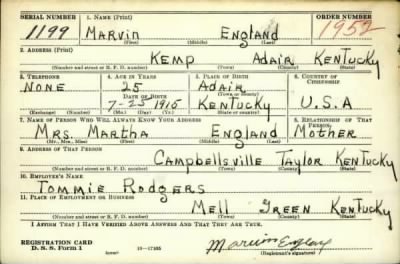 SERIAL NUMBER 1. NAME (Print) ORDER NUMBER
1199 MARVIN ENGLAND 1952
(First) (Middle) (Last)
2. ADDRESS (Print)
KEMP ADAIR KENTUCKY
(Number and street or R. F. D. number) (Town) (County) (State)
3. TELEPHONE 4. AGE IN YEARS 5. PLACE OF BIRTH 6. COUNTRY OF CITIZENSHIP
NONE 25 ADAIR
(Town or county)
DATE OF BIRTH
7-25 1915 KENTUCKY U.S.A
(Exchange) (Number) (Mo.) (Day) (Yr.) (State or country)
7. NAME OF PERSON WHO WILL ALWAYS KNOW YOUR ADDRESS 8. RELATIONSHIP OF THAT PERSON
MRS. MARTHA ENGLAND MOTHER
(Mr., Mrs., Miss) (First) (Middle) (Last)
9. ADDRESS OF THAT PERSON
CAMPBELLSVILLE TAYLOR KENTUCKY
(Number and street or R. F. D. number) (Town) (County) (State)
10. EMPLOYER'S NAME
TOMMIE RODGERS
11. PLACE OF EMPLOYMENT OR BUSINESS
MELL GREEN KENTUCKY
(Number and street or R. F. D. number) (Town) (County) (State)
I AFFIRM THAT I HAVE VERIFIED ABOVE ANSWERS AND THAT THEY ARE TRUE.
REGISTRATION CARD
D. S. S. Form 1 Marvin England
(Registrant's signature)